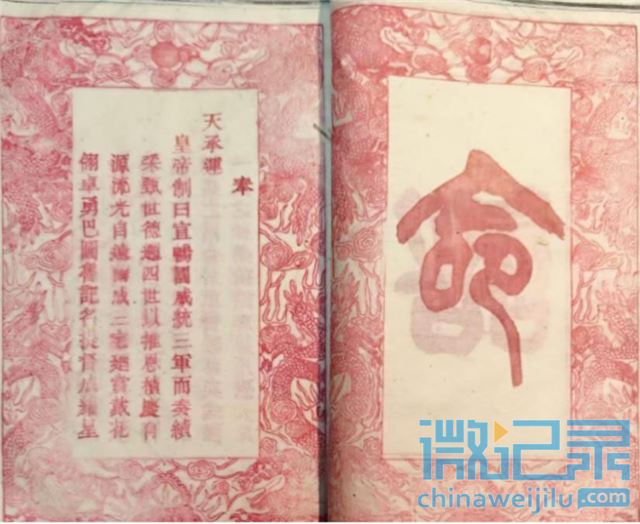 命
奉
天承運
皇帝制曰宣暢國威統三軍而奏績
世德四世以推恩積慶有
源流光自遠爾成三賞戴花
翎卓勇巴圖魯記名提督成耀星
微记录
chinaweijilu.com